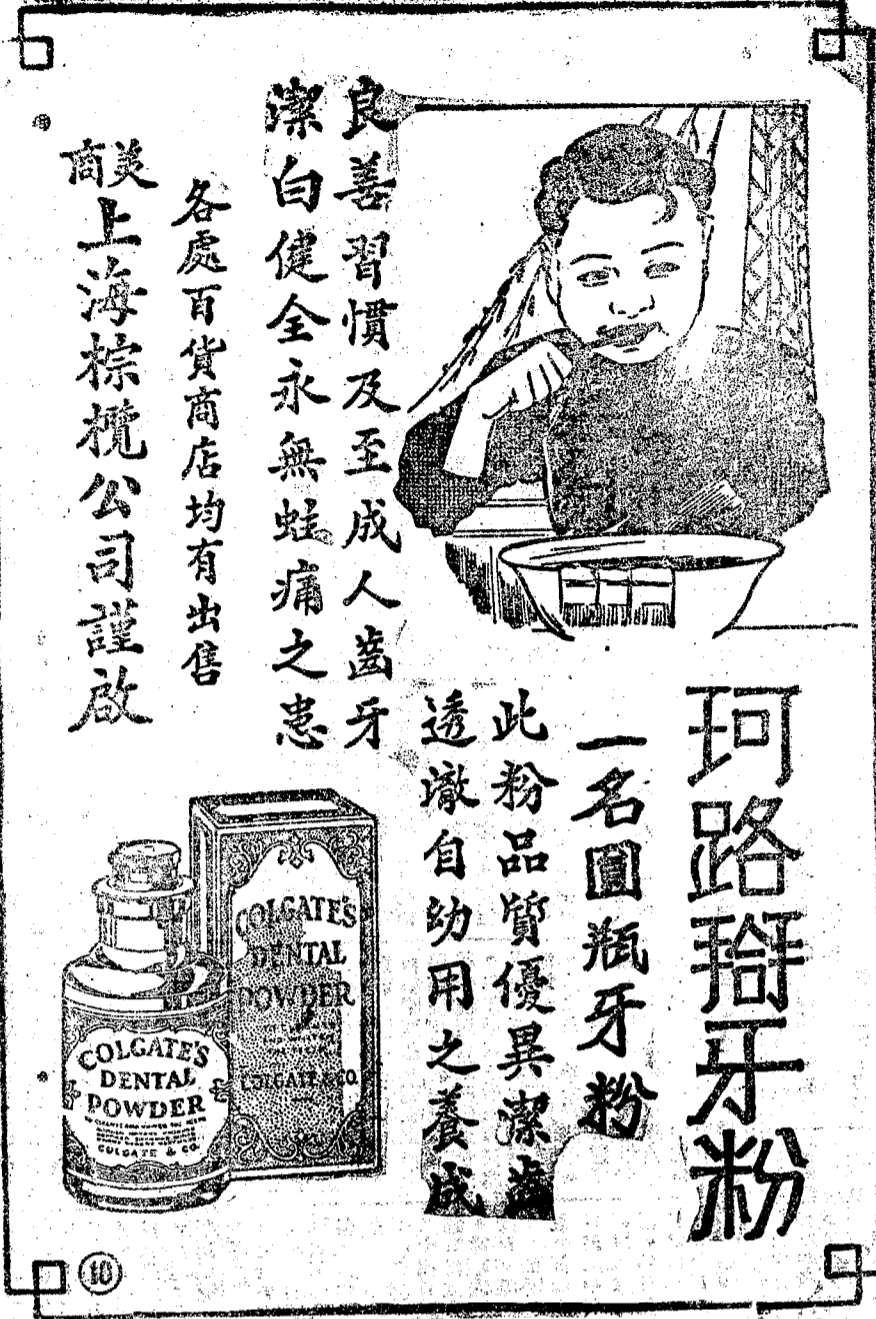 珂路搿牙粉
一名圓瓶牙粉
此粉品質優異潔齒
透澈自幼用之養成
良善習慣及至成人齒牙
潔白健全永無蛀痛之患
各處百貨商店均有出售
美商上海棕欖公司謹啟
COLGATE'S
DENTAL
POWDER
COLGATE & CO.
COLGATE'S
DENTAL
POWDER
COLGATE & CO.
10